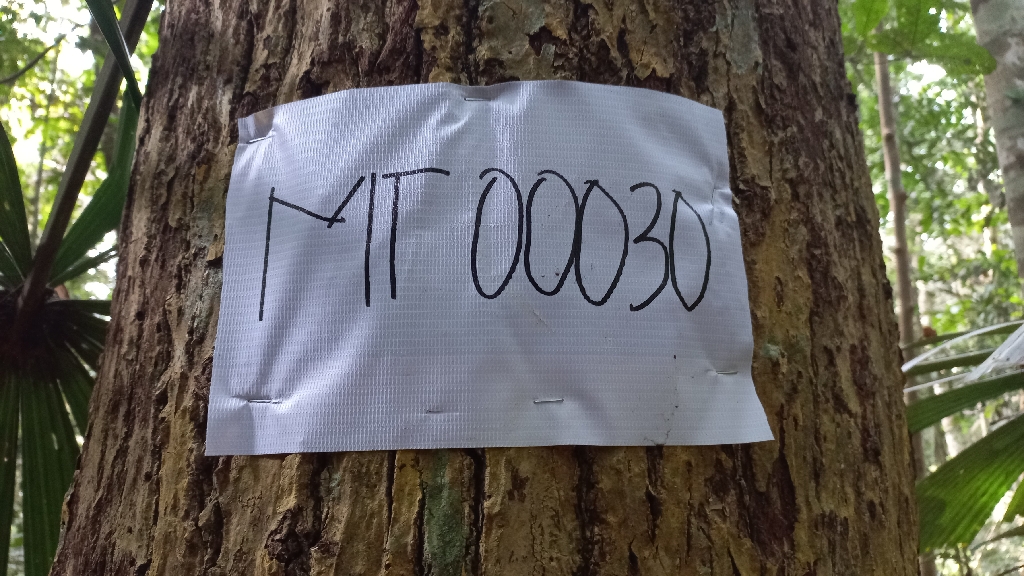 MT 00030